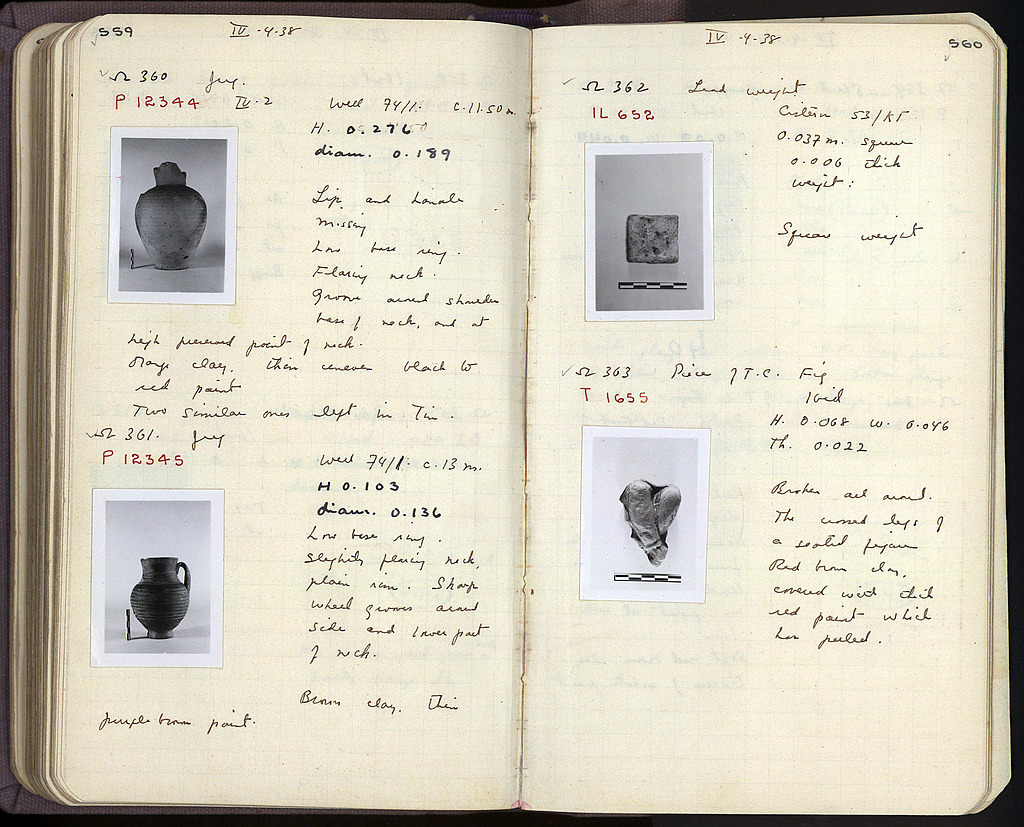 559
IV -4-38
✓ Ω 360 Jug.
P 12344 IV-2
Well 74/1: c. 11.50 m.
H. 0.276
diam. 0.189
Lip and handle
missing
Low base ring.
Flaring neck.
Groove around shoulder
base of neck, and at
high preserved point of neck.
Orange clay. thin uneven black to
red paint
Two similar ones left in Tin
✓ Ω 361. Jug
P 12345
Well 74/1: c. 13 m.
H 0.103
diam. 0.136
Low base ring.
Slightly flaring neck,
plain rim. Sharp
wheel grooves around
side and lower part
of neck.
Brown clay. Thin
purple brown paint.
560
IV -4-38
✓ Ω 362 Lead weight
IL 652
Cistern 53/ΚΓ
0.037 m. square
0.006 thick
weight:
Square weight
✓ Ω 363 Piece of T.C. Fig
T 1655
Ibid
H. 0.068 W. 0.046
Th. 0.022
Broken all around.
The crossed legs of
a seated figure
Red brown clay,
covered with thick
red paint which
has peeled.